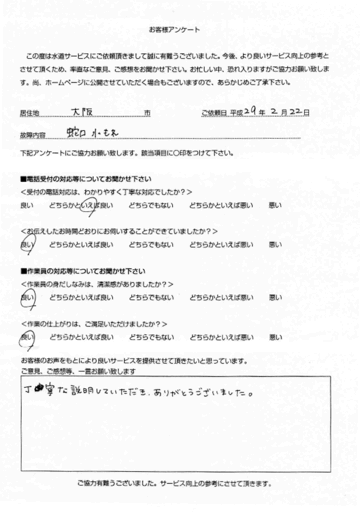 お客様アンケート
この度は水道サービスにご依頼頂きまして誠に有難うございました。今後、より良いサービス向上の参考と
させて頂くため、率直なご意見、ご感想をお聞かせ下さい。お忙しい中、恐れ入りますがご協力お願い致しま
す。尚、ホームページに公開させていただく場合もございますので、あらかじめご了承下さい。
居住地 大阪 市 ご依頼日 平成29年 2月 22日
故障内容 蛇口 水もれ
下記アンケートにご協力お願い致します。該当項目に○印をつけて下さい。
■電話受付の対応等についてお聞かせ下さい
<受付の電話対応は、わかりやすく丁寧な対応でしたか？>
良い どちらかといえば良い どちらでもない どちらかといえば悪い 悪い
<お伝えしたお時間どおりにお伺いすることができていましたか？>
良い どちらかといえば良い どちらでもない どちらかといえば悪い 悪い
■作業員の対応等についてお聞かせ下さい
<作業員の身だしなみは、清潔感がありましたか？>
良い どちらかといえば良い どちらでもない どちらかといえば悪い 悪い
<作業の仕上がりは、ご満足いただけましたか？>
良い どちらかといえば良い どちらでもない どちらかといえば悪い 悪い
お客様のお声をもとにより良いサービスを提供させて頂きたいと思っています。
ご意見、ご感想等、一言お願い致します
丁寧な説明していただき、ありがとうございました。
ご協力有難うございました。サービス向上の参考にさせて頂きます。